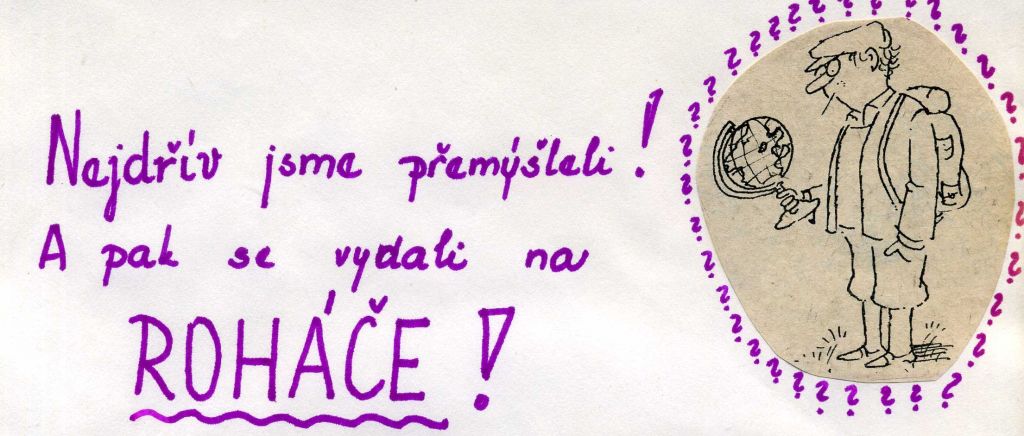 Nejdřív jsme přemýšleli!
A pak se vydali na
ROHÁČE!